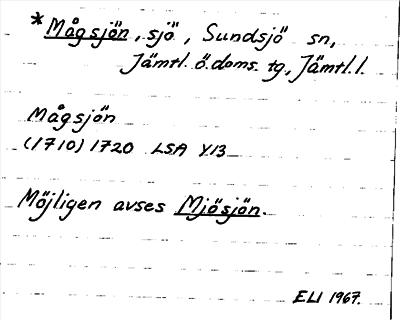 *Mågsjön, sjö, Sundsjö sn,
Jämtl. ö. doms. tg, Jämtl. l.
Mågsjön
(1710) 1720 LSA Y13
Möjligen avses Mjösjön.
ELI 1967.